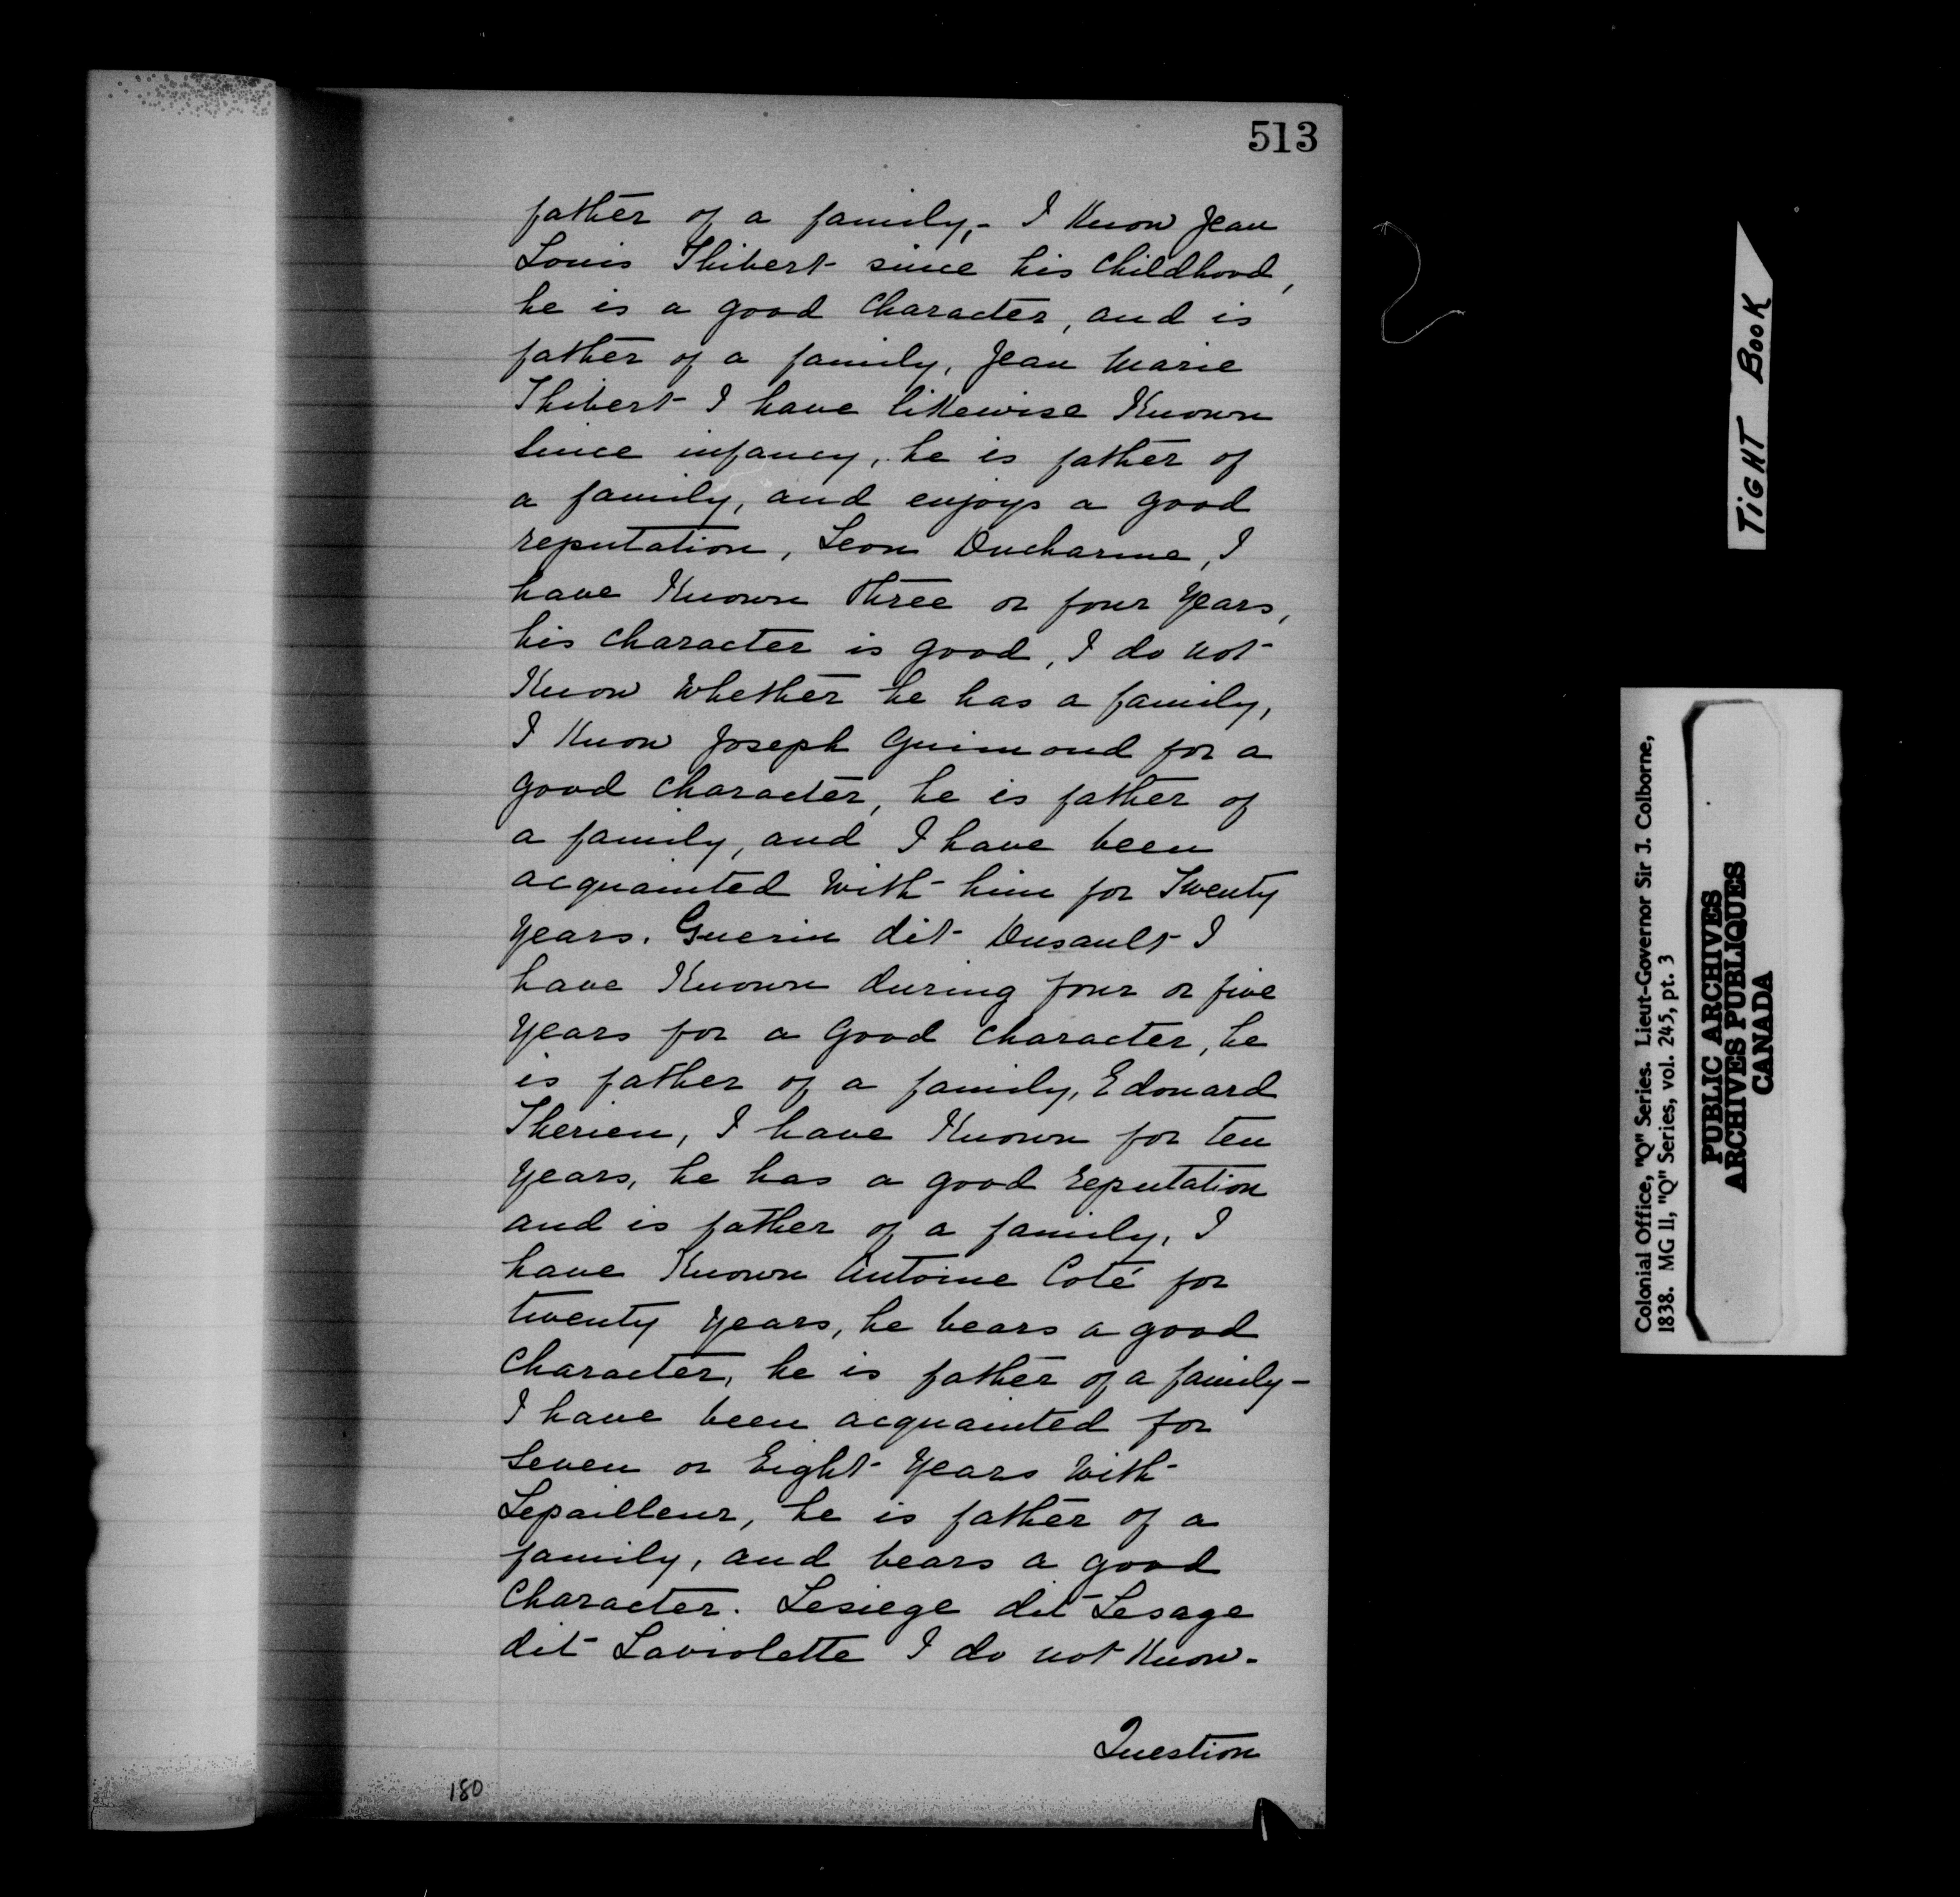 513
father of a family,- I Know Jean
Louis Thibert since his childhood,
he is a good character, and is
father of a family, Jean Marie
Thibert I have likewise Known
since infancy, he is father of
a family, and enjoys a good
reputation, Leon Ducharme, I
have Known three or four years,
his character is good, I do not
Know whether he has a family,
I Know Joseph Guimond for a
good character, he is father of
a family, and I have been
acquainted with him for Twenty
years. Guerin dit Dusault I
have Known during four or five
years for a good character, he
is father of a family, Edouard
Therien, I have Known for ten
years, he has a good reputation
and is father of a family, I
have Known Antoine Coté for
twenty years, he bears a good
character, he is father of a family-
I have been acquainted for
seven or Eight years with
Lepailleur, he is father of a
family, and bears a good
character. Lesiege dit Lesage
dit Laviolette I do not Know.
Question
180
TIGHT BOOK
Colonial Office, "Q" Series. Lieut-Governor Sir J. Colborne,
1838. MG 11, "Q" Series, vol. 245, pt. 3
PUBLIC ARCHIVES
ARCHIVES PUBLIQUES
CANADA